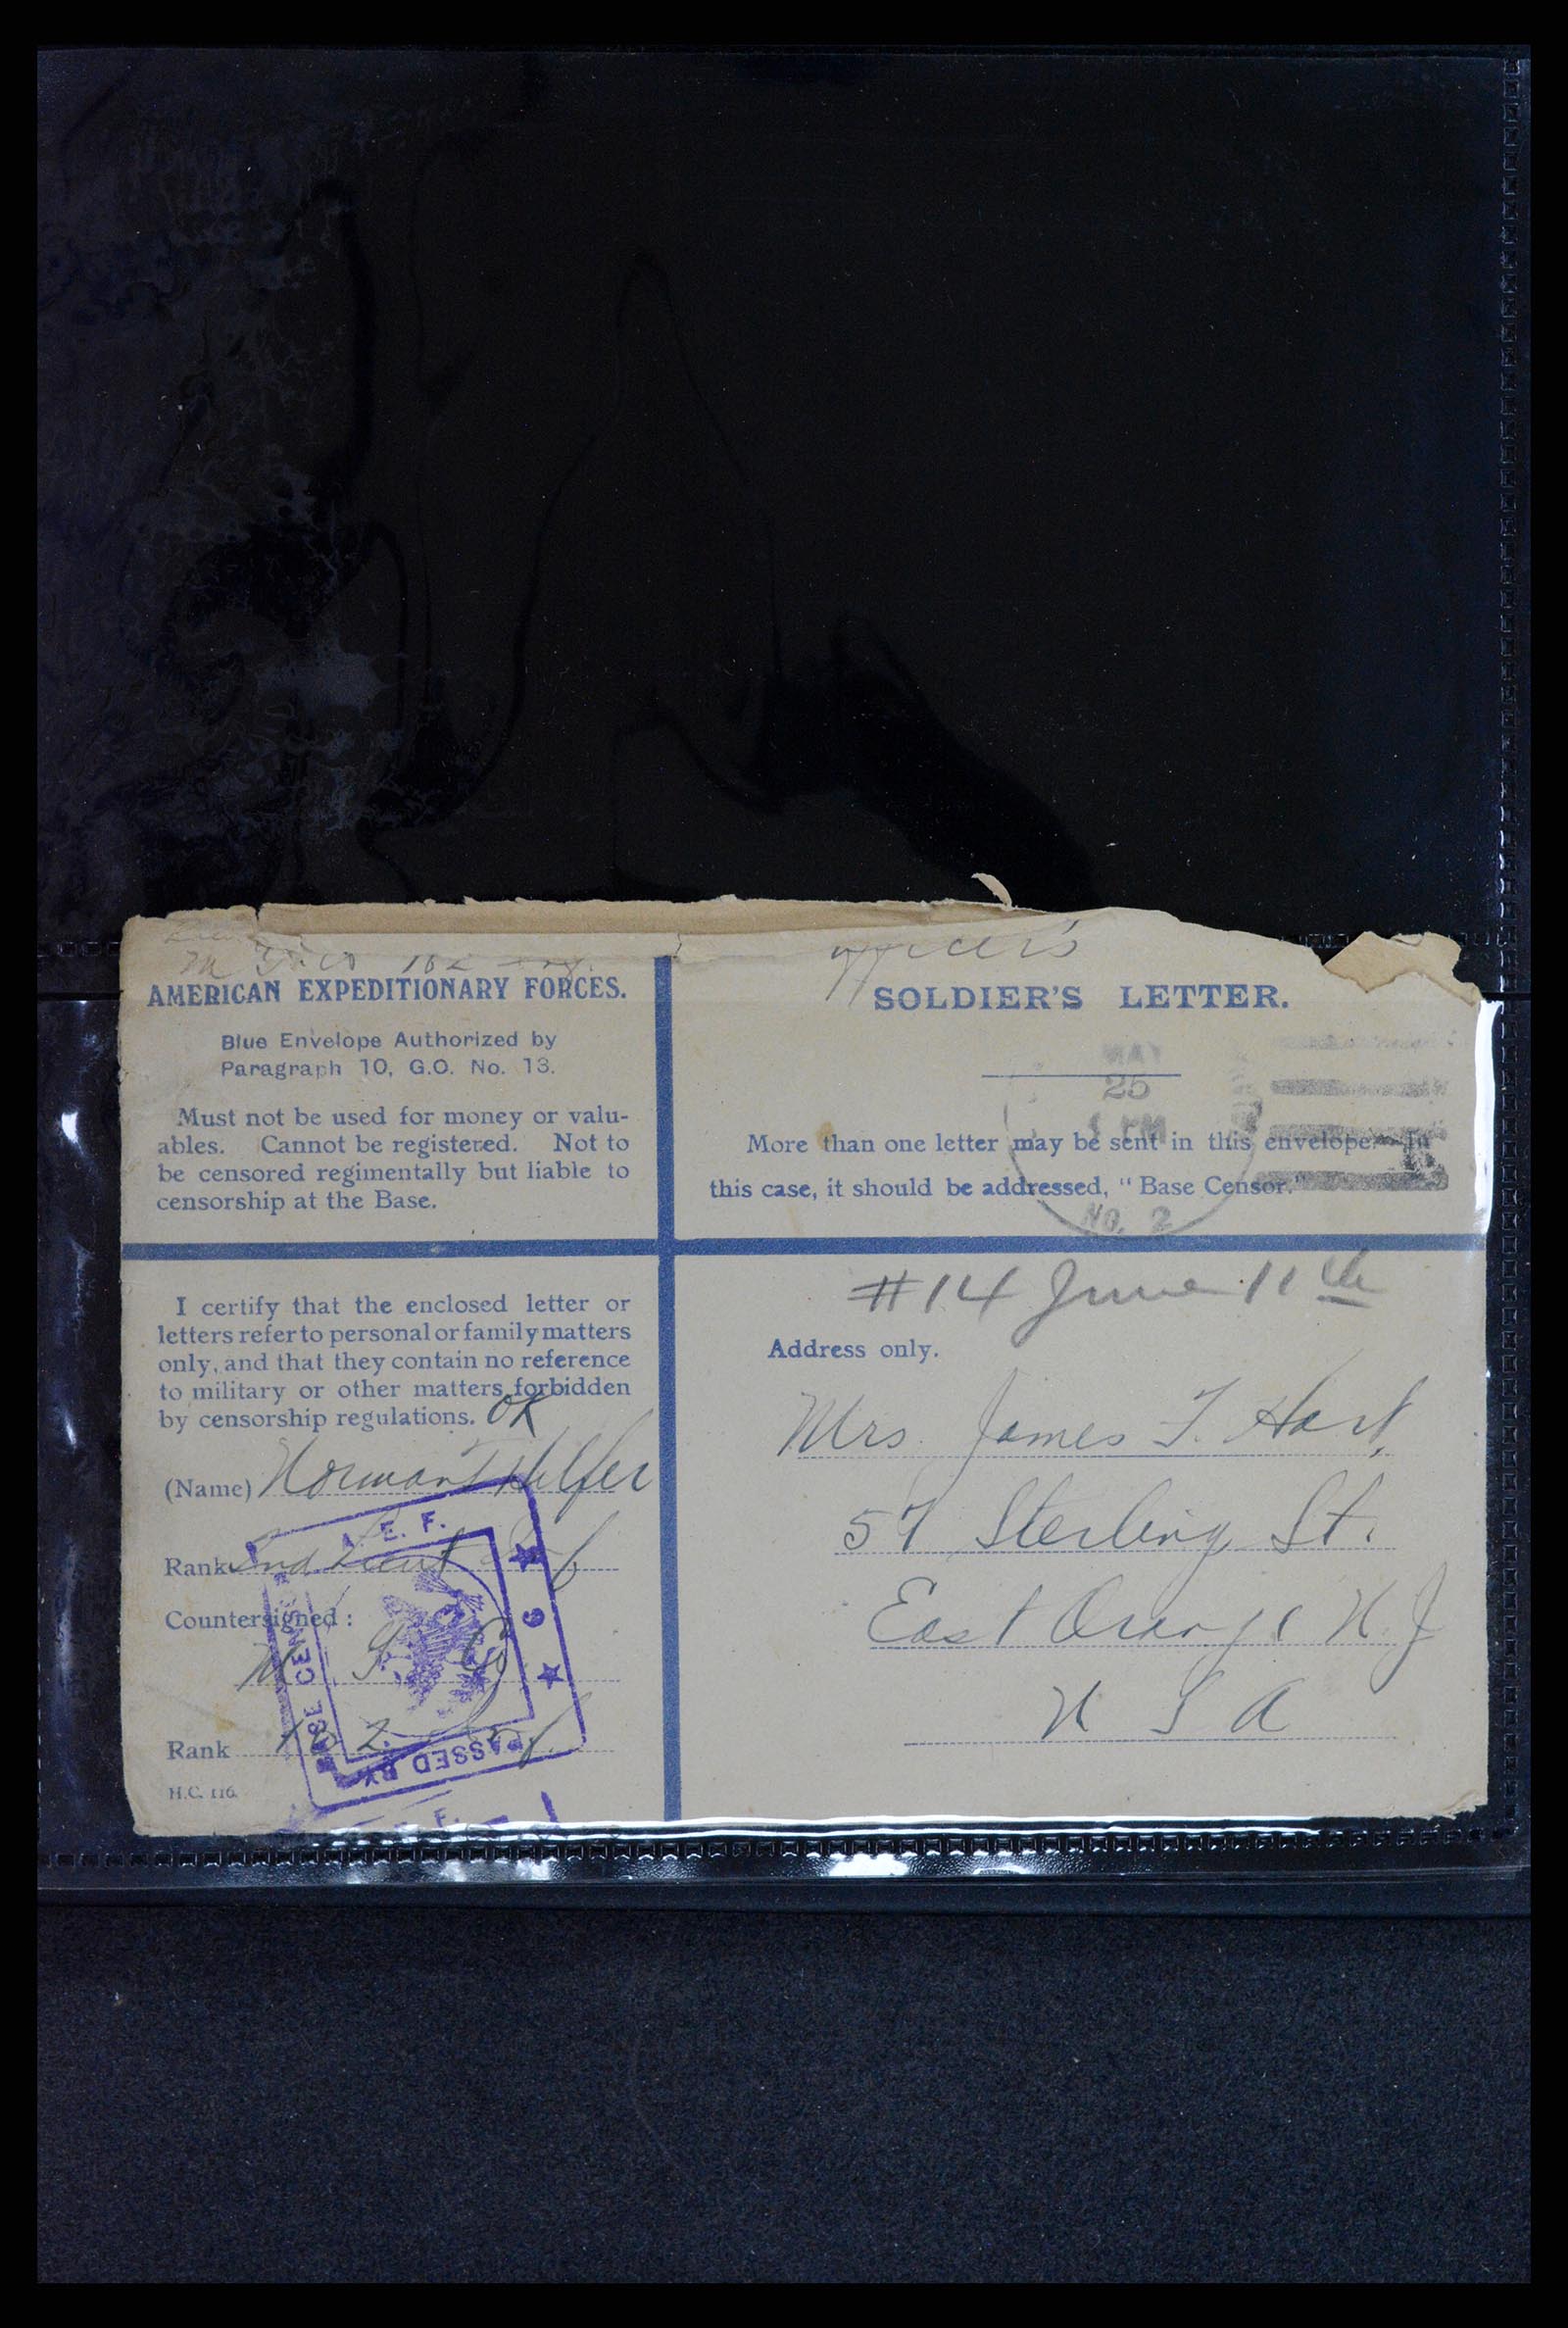 Officer's
AMERICAN EXPEDITIONARY FORCES.
Blue Envelope Authorized by
Paragraph 10, G.O. No. 13.
Must not be used for money or valu-
ables. Cannot be registered. Not to
be censored regimentally but liable to
censorship at the Base.
SOLDIER'S LETTER.
MAY
25
1 PM
NO. 2
More than one letter may be sent in this envelope. In
this case, it should be addressed, "Base Censor."
I certify that the enclosed letter or
letters refer to personal or family matters
only, and that they contain no reference
to military or other matters forbidden
by censorship regulations. OK
(Name) Norman T Hilfer
Rank 2nd Lieut Inf
Countersigned :
M. G. Co
Rank 102 Inf.
H.C. 116.
A. E. F.
BASE CENSOR
PASSED BY
6
E. F.
#14 June 11th
Address only.
Mrs. James F. Hart,
57 Sterling St.
East Orange N. J
U S A